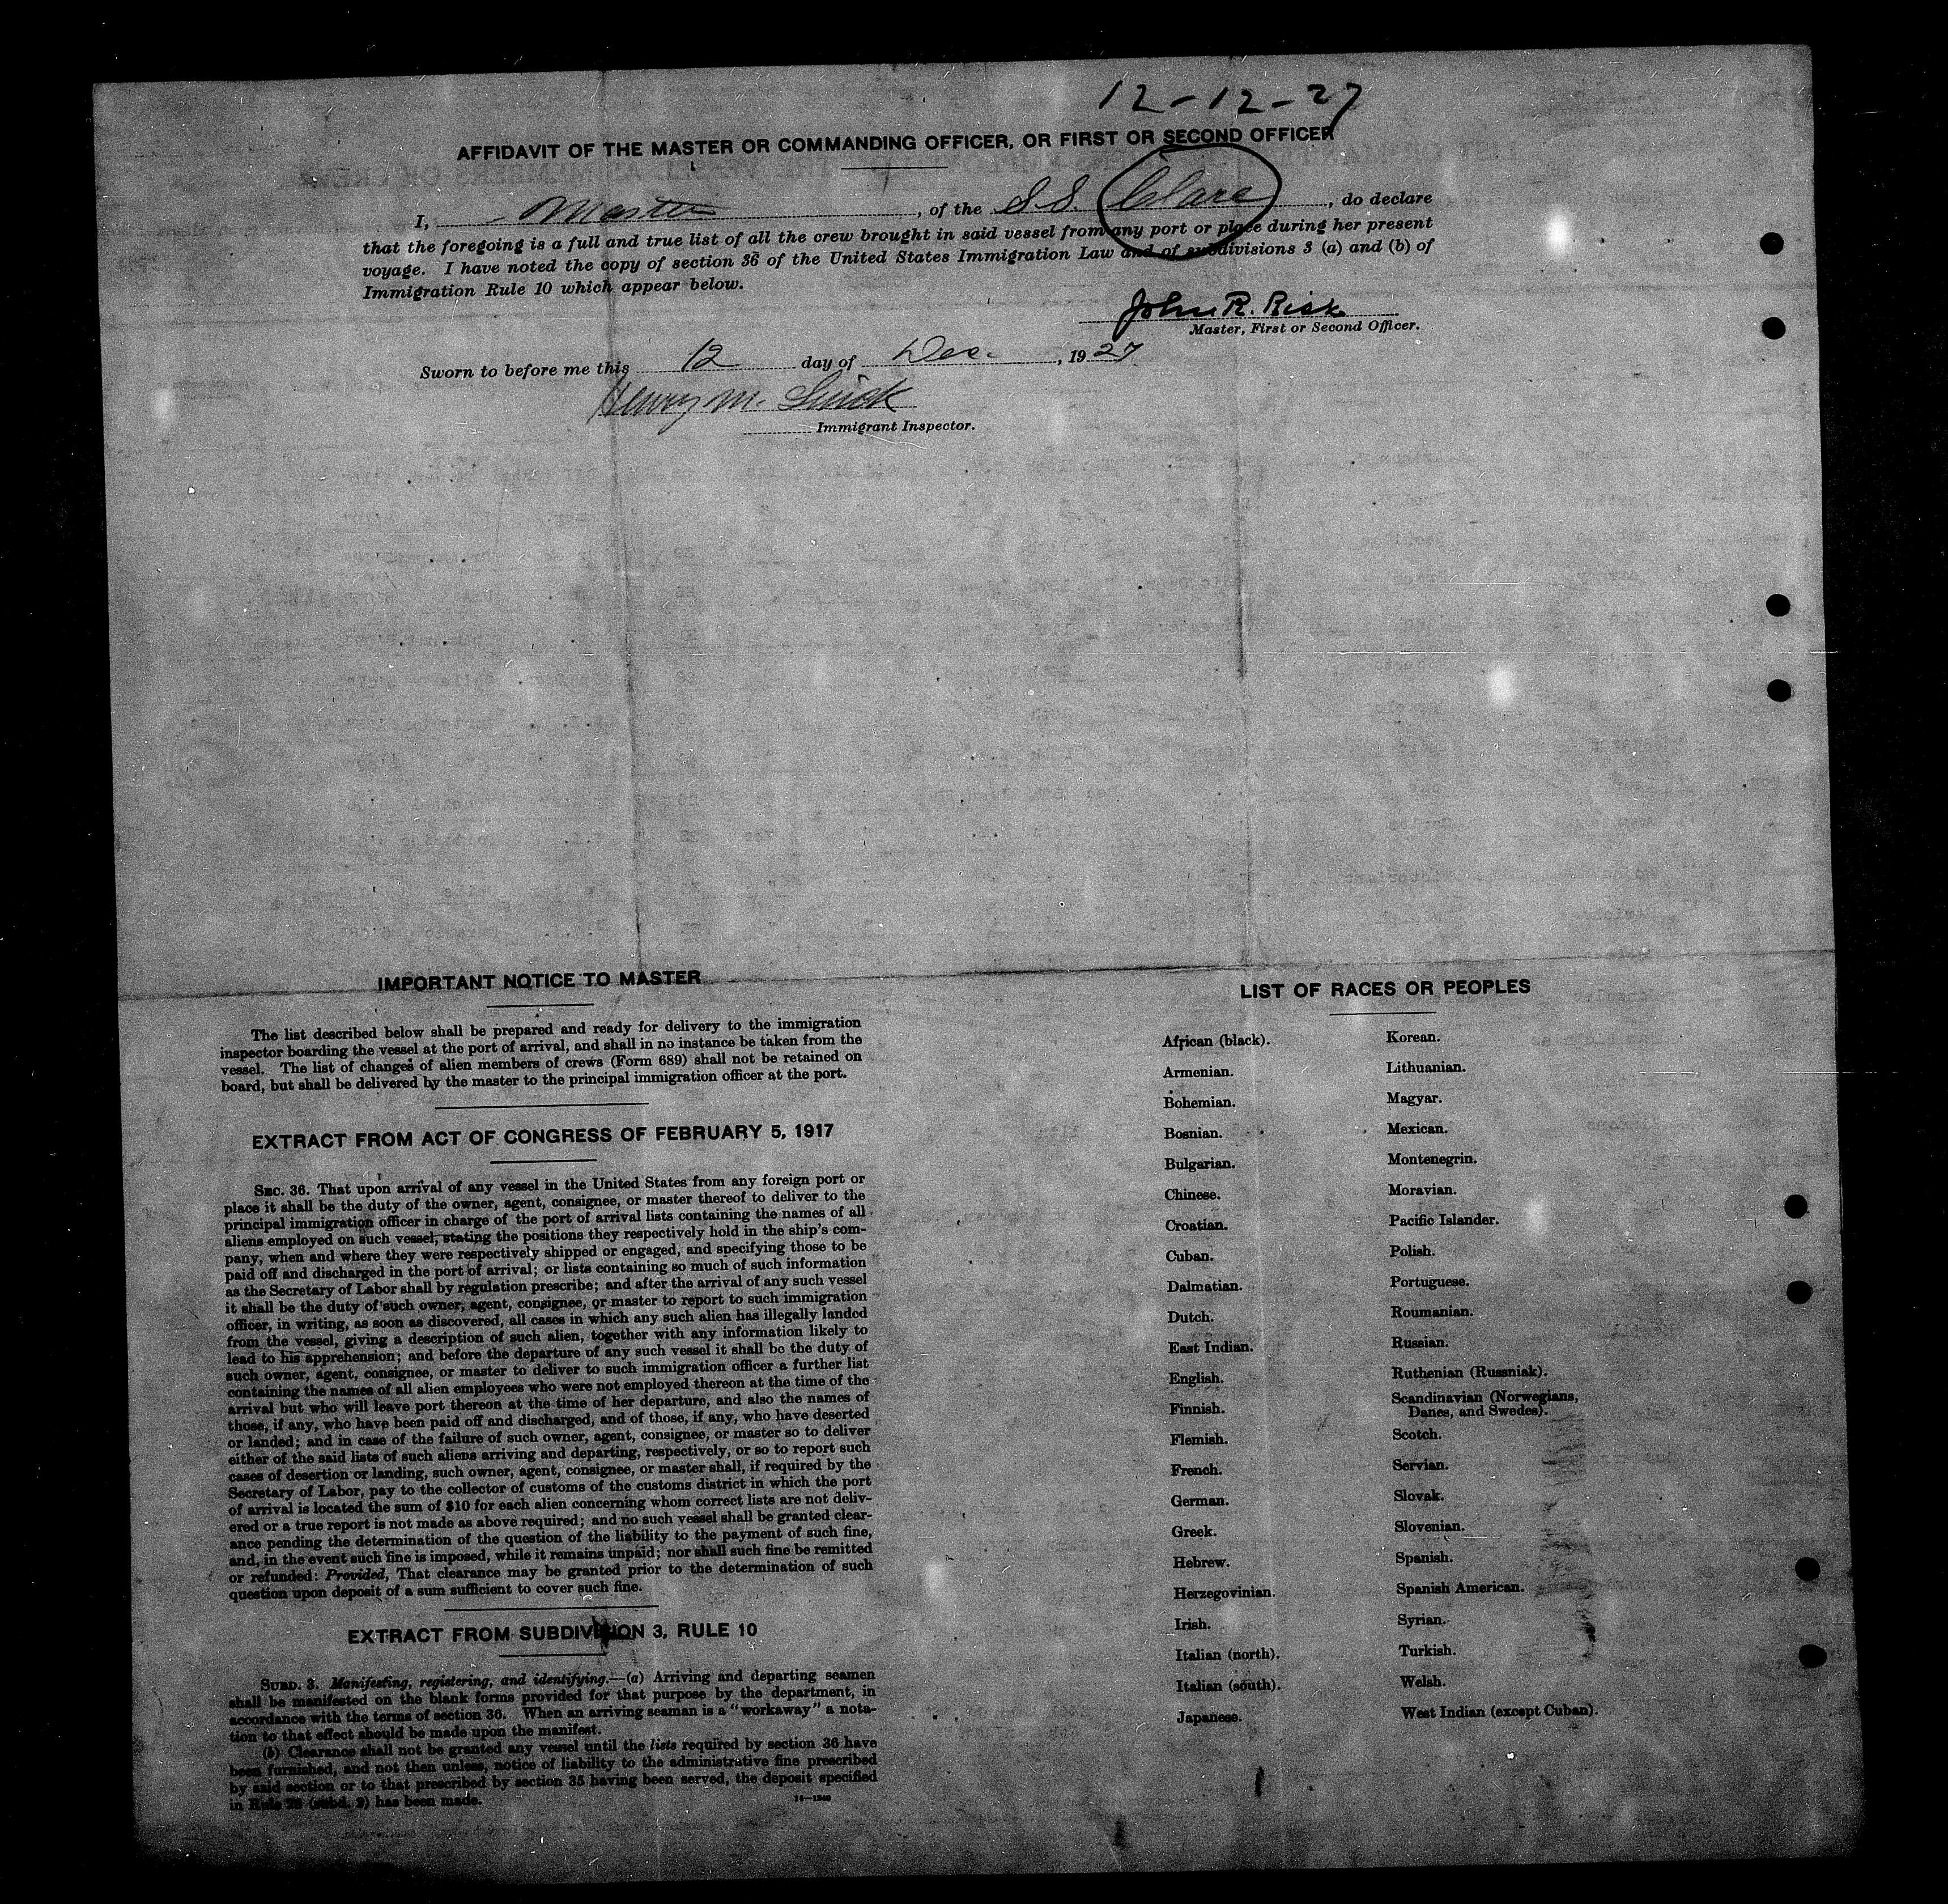 12-12-27
AFFIDAVIT OF THE MASTER OR COMMANDING OFFICER, OR FIRST OR SECOND OFFICER
I, Master, of the S.S. Clare, do declare
that the foregoing is a full and true list of all the crew brought in said vessel from any port or place during her present
voyage. I have noted the copy of section 36 of the United States Immigration Law and of subdivisions 3 (a) and (b) of
Immigration Rule 10 which appear below.
John R. Risk
Master, First or Second Officer.
Sworn to before me this 12 day of Dec. , 1927
Henry M.
Immigrant Inspector.
IMPORTANT NOTICE TO MASTER
The list described below shall be prepared and ready for delivery to the immigration
inspector boarding the vessel at the port of arrival, and shall in no instance be taken from the
vessel. The list of changes of alien members of crews (Form 689) shall not be retained on
board, but shall be delivered by the master to the principal immigration officer at the port.
EXTRACT FROM ACT OF CONGRESS OF FEBRUARY 5, 1917
SEC. 36. That upon arrival of any vessel in the United States from any foreign port or
place it shall be the duty of the owner, agent, consignee, or master thereof to deliver to the
principal immigration officer in charge of the port of arrival lists containing the names of all
aliens employed on such vessel, stating the positions they respectively hold in the ship's com-
pany, when and where they were respectively shipped or engaged, and specifying those to be
paid off and discharged in the port of arrival; or lists containing so much of such information
as the Secretary of Labor shall by regulation prescribe; and after the arrival of any such vessel
it shall be the duty of such owner, agent, consignee, or master to report to such immigration
officer, in writing, as soon as discovered, all cases in which any such alien has illegally landed
from the vessel, giving a description of such alien, together with any information likely to
lead to his apprehension; and before the departure of any such vessel it shall be the duty of
such owner, agent, consignee, or master to deliver to such immigration officer a further list
containing the names of all alien employees who were not employed thereon at the time of the
arrival but who will leave port thereon at the time of her departure, and also the names of
those, if any, who have been paid off and discharged, and of those, if any, who have deserted
or landed; and in case of the failure of such owner, agent, consignee, or master so to deliver
either of the said lists of such aliens arriving and departing, respectively, or so to report such
cases of desertion or landing, such owner, agent, consignee, or master shall, if required by the
Secretary of Labor, pay to the collector of customs of the customs district in which the port
of arrival is located the sum of $10 for each alien concerning whom correct lists are not deliv-
ered or a true report is not made as above required; and no such vessel shall be granted clear-
ance pending the determination of the question of the liability to the payment of such fine,
and, in the event such fine is imposed, while it remains unpaid; nor shall such fine be remitted
or refunded: Provided, That clearance may be granted prior to the determination of such
question upon deposit of a sum sufficient to cover such fine.
EXTRACT FROM SUBDIVISION 3, RULE 10
SUBD. 3. Manifesting, registering, and identifying.—(a) Arriving and departing seamen
shall be manifested on the blank forms provided for that purpose by the department, in
accordance with the terms of section 36. When an arriving seaman is a "workaway" a nota-
tion to that effect should be made upon the manifest.
(b) Clearance shall not be granted any vessel until the lists required by section 36 have
been furnished, and not then unless, notice of liability to the administrative fine prescribed
by said section or to that prescribed by section 35 having been served, the deposit specified
in Rule 28 (subd. 2) has been made.
LIST OF RACES OR PEOPLES
African (black).
Armenian.
Bohemian.
Bosnian.
Bulgarian.
Chinese.
Croatian.
Cuban.
Dalmatian.
Dutch.
East Indian.
English.
Finnish.
Flemish.
French.
German.
Greek.
Hebrew.
Herzegovinian.
Irish.
Italian (north).
Italian (south).
Japanese.
Korean.
Lithuanian.
Magyar.
Mexican.
Montenegrin.
Moravian.
Pacific Islander.
Polish.
Portuguese.
Roumanian.
Russian.
Ruthenian (Russniak).
Scandinavian (Norwegians,
Danes, and Swedes).
Scotch.
Servian.
Slovak.
Slovenian.
Spanish.
Spanish American.
Syrian.
Turkish.
Welsh.
West Indian (except Cuban).